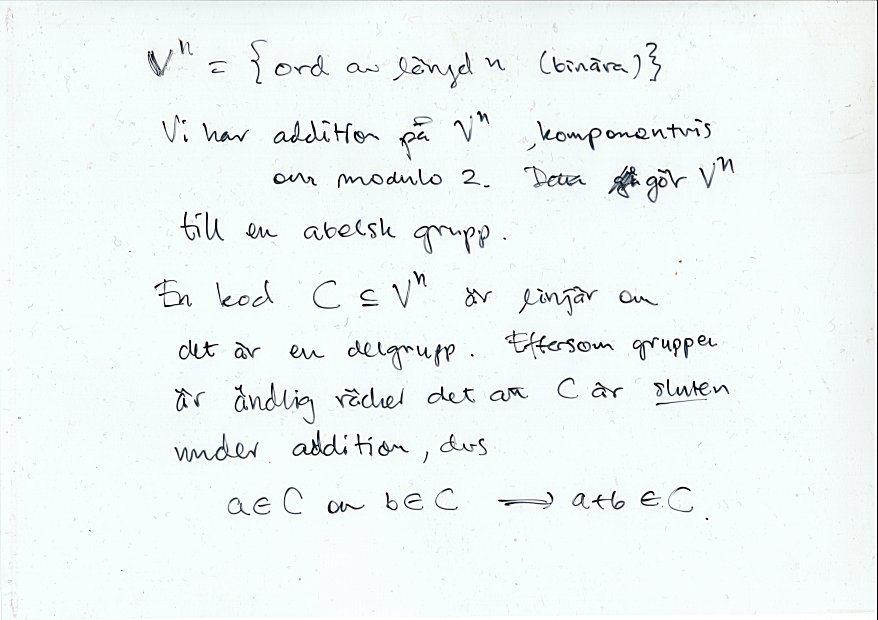 Vⁿ = { ord av längd n (binära)}
Vi har addition på Vⁿ, komponentvis
modulo 2. Detta gör Vⁿ
till en abelsk grupp.
En kod C ⊆ Vⁿ är linjär om
det är en delgrupp. Eftersom gruppen
är ändlig räcker det att C är sluten
under addition, dvs
a ∈ C och b ∈ C ⟹ a+b ∈ C.